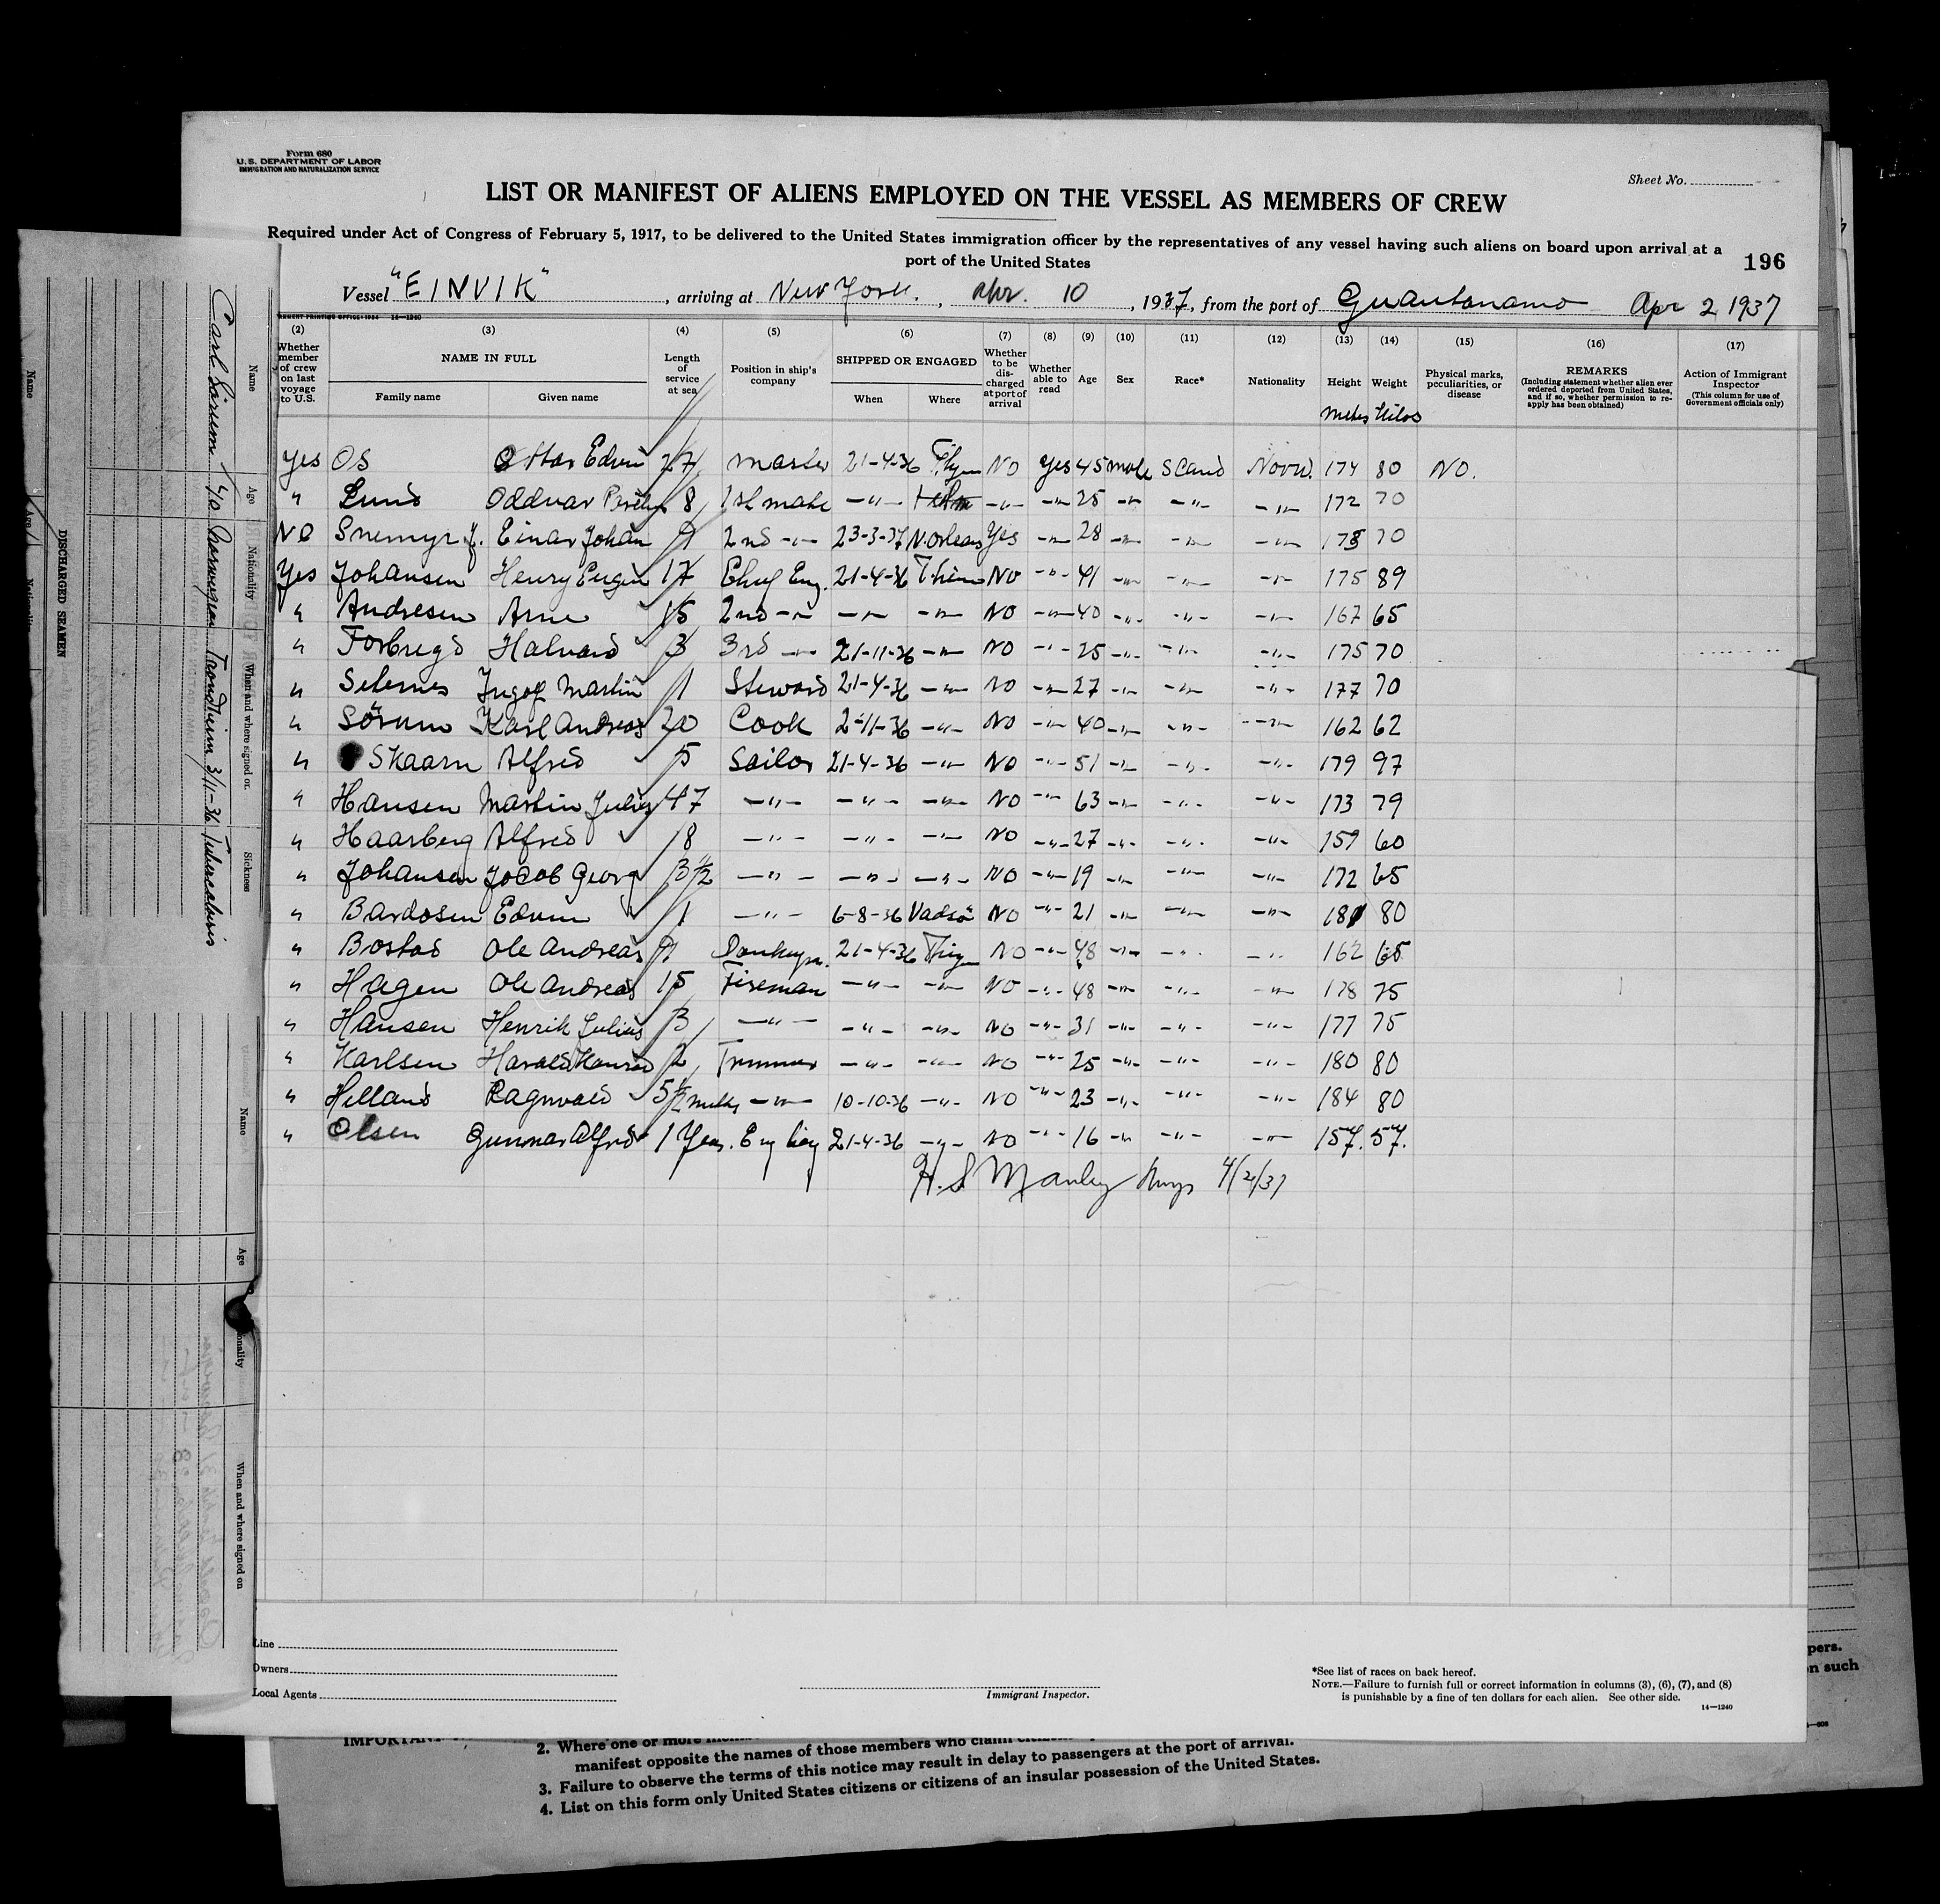 Form 680
U. S. DEPARTMENT OF LABOR
IMMIGRATION AND NATURALIZATION SERVICE
Sheet No.
LIST OR MANIFEST OF ALIENS EMPLOYED ON THE VESSEL AS MEMBERS OF CREW
Required under Act of Congress of February 5, 1917, to be delivered to the United States immigration officer by the representatives of any vessel having such aliens on board upon arrival at a
port of the United States
196
Vessel "EINVIK", arriving at New York., Apr. 10, 1937, from the port of Guantanamo Apr 2 1937
(2) (3) (4) (5) (6) (7) (8) (9) (10) (11) (12) (13) (14) (15) (16) (17)
Whether member of crew on last voyage to U.S.
NAME IN FULL
Family name Given name
Length of service at sea
Position in ship's company
SHIPPED OR ENGAGED
When Where
Whether to be discharged at port of arrival
Whether able to read
Age
Sex
Race*
Nationality
Height
Weight
Physical marks, peculiarities, or disease
REMARKS
(Including statement whether alien ever ordered deported from United States, and if so, whether permission to reapply has been obtained)
Action of Immigrant Inspector
(This column for use of Government officials only)
Kilos
Yes OS Ottar Edvin 27 Master 21-4-36 NO Yes 45 male Scand 174 80 NO.
" Lund Oddvar 8 1st mate -"- -"- -"- 25 -"- -"- -"- 172 70
NO Snemyr J. Einar Johan 9 2nd -"- 23-3-37 N.Orleans Yes -"- 28 -"- -"- -"- 178 70
Yes Johansen Henry Eugen 17 Chief Eng. 21-4-36 NO -"- 41 -"- -"- -"- 175 89
" Andresen Arne 15 2nd -"- -"- -"- NO -"- 40 -"- -"- -"- 167 65
" Forbregd Halvard 3 3rd -"- 21-11-36 -"- NO -"- 25 -"- -"- -"- 175 70
" Selernes Ingolf Martin 1 Steward 21-4-36 -"- NO -"- 27 -"- -"- -"- 177 70
" Sörum Karl Andreas 20 Cook 2-11-36 -"- NO -"- 40 -"- -"- -"- 162 62
" Skaarn Alfred 5 Sailor 21-4-36 -"- NO -"- 51 -"- -"- -"- 179 97
" Hansen Martin Julius 47 -"- -"- -"- NO -"- 63 -"- -"- -"- 173 79
" Haarberg Alfred 8 -"- -"- -"- NO -"- 27 -"- -"- -"- 159 60
" Johansen Jacob Georg 3 1/2 -"- -"- -"- NO -"- 19 -"- -"- -"- 172 65
" Bardosen Edvin 1 -"- 6-8-36 Vadsö NO -"- 21 -"- -"- -"- 181 80
" Bostad Ole Andreas 9 Donkeym. 21-4-36 NO -"- 48 -"- -"- -"- 162 65
" Hagen Ole Andreas 15 Fireman -"- -"- NO -"- 48 -"- -"- -"- 178 75
" Hansen Henrik Julius 3 -"- -"- -"- NO -"- 31 -"- -"- -"- 177 75
" Karlsen Harald Konrad 2 Trimmer -"- -"- NO -"- 25 -"- -"- -"- 180 80
" Helland Ragnvald 5 1/2 -"- 10-10-36 -"- NO -"- 23 -"- -"- -"- 184 80
" Olsen Gunnar Alfred 1 Year. Eng boy 21-4-36 -"- NO -"- 16 -"- -"- -"- 157. 57.
H. S Manley 4/2/37
Line
Owners
Local Agents
Immigrant Inspector.
*See list of races on back hereof.
NOTE.—Failure to furnish full or correct information in columns (3), (6), (7), and (8)
is punishable by a fine of ten dollars for each alien. See other side.
14—1240
DISCHARGED SEAMEN
Name Age Nationality When and where signed or. Sickness
Carl Sörum 40 Norwegian Trondheim 3/11-36 Tuberculosis
Name Age When and where signed on
2. Where one or more
manifest opposite the names of those members who claim
manifest opposite the names of this notice may result in delay to passengers at the port of arrival.
3. Failure to observe the terms of this notice may result in delay to passengers at the port of arrival.
4. List on this form only United States citizens or citizens of an insular possession of the United States.
pers.
n such